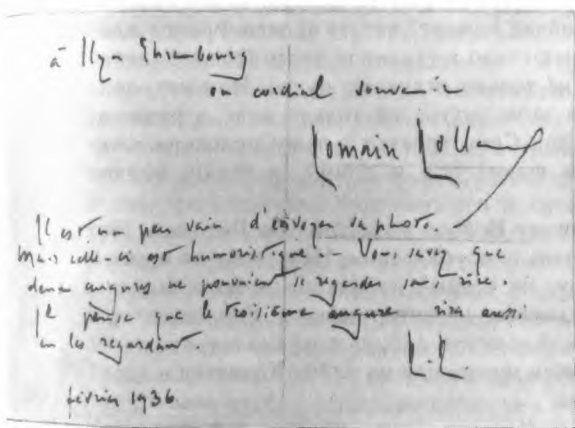 à Ilya Ehrenbourg
en cordial souvenir
Romain Rolland
Il est un peu vain d'envoyer sa photo.
Mais celle-ci est humoristique. Vous savez que
deux augures ne pouvaient se regarder sans rire.
Je pense que le troisième augure rira aussi
en les regardant
RR
février 1936